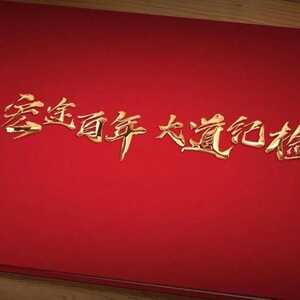 宏途百年 大道纪检